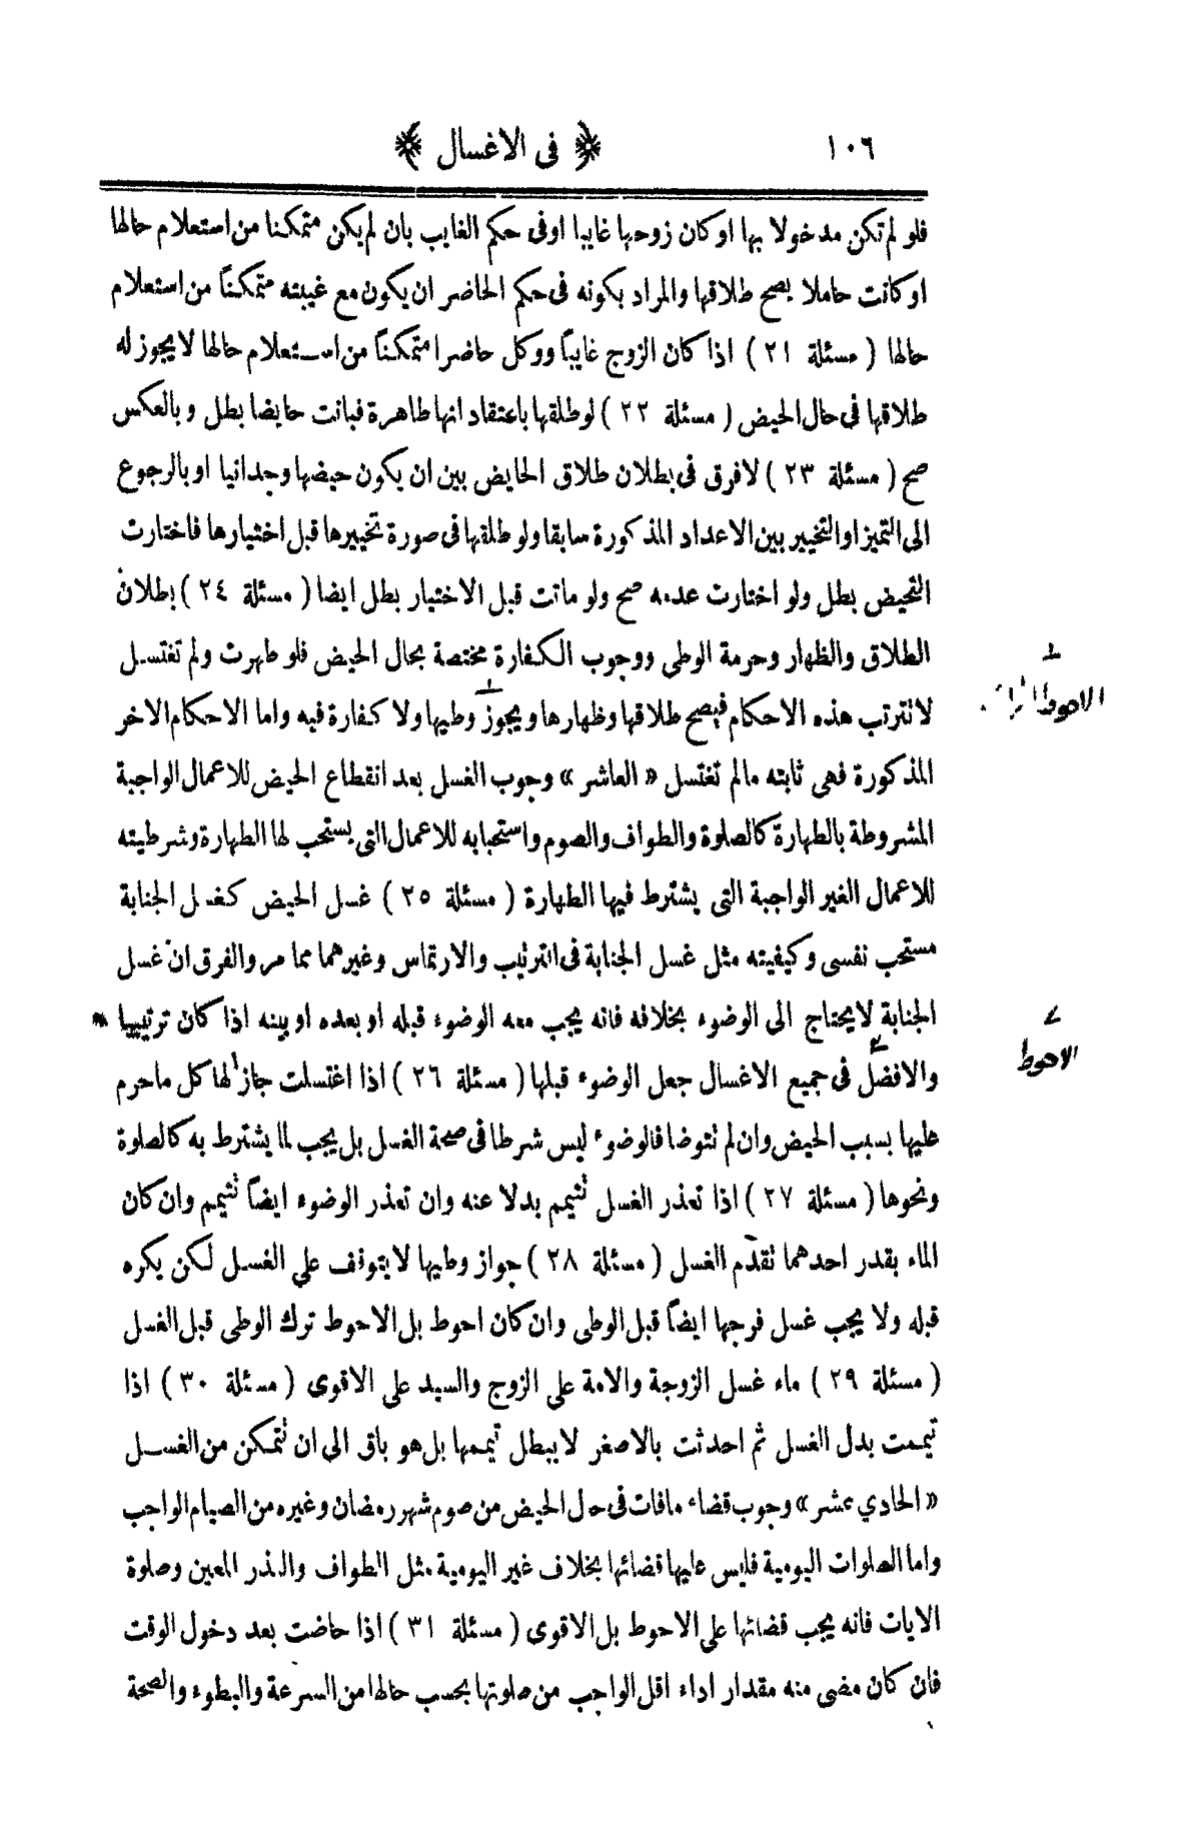 ١٠٦ ﴿ فى الاغسال ﴾
فلو لم تكن مدخولا بها او كان زوجها غايبا او فى حكم الغايب بان لم يكن متمكنا من استعلام حالها
او كانت حاملا يصح طلاقها والمراد بكونه فى حكم الحاضر ان يكون مع غيبته متمكناً من استعلام
حالها ( مسئلة ٢١ ) اذا كان الزوج غايباً ووكل حاضرا متمكناً من استعلام حالها لا يجوز له
طلاقها فى حال الحيض ( مسئلة ٢٢ ) لو طلقها باعتقاد انها طاهرة فبانت حايضا بطل وبالعكس
صح ( مسئلة ٢٣ ) لا فرق فى بطلان طلاق الحايض بين ان يكون حيضها وجدانيا او بالرجوع
الى التميز او التخيير بين الاعداد المذكورة سابقا ولو طلقها فى صورة تخييرها قبل اختيارها فاختارت
التحيض بطل ولو اختارت عدمه صح ولو ماتت قبل الاختيار بطل ايضا ( مسئلة ٢٤ ) بطلان
الطلاق والظهار وحرمة الوطى ووجوب الكفارة مختصة بحال الحيض فلو طهرت ولم تغتسل
لا تترتب هذه الاحكام فيصح طلاقها وظهارها ويجوز وطيها ولا كفارة فيه واما الاحكام الاخر
المذكورة فهى ثابته مالم تغتسل « العاشر » وجوب الغسل بعد انقطاع الحيض للاعمال الواجبة
المشروطة بالطهارة كالصلوة والطواف والصوم واستحبابه للاعمال التى يستحب لها الطهارة وشرطيته
للاعمال الغير الواجبة التى يشترط فيها الطهارة ( مسئلة ٢٥ ) غسل الحيض كغسل الجنابة
مستحب نفسى وكيفيته مثل غسل الجنابة فى الترتيب والارتماس وغيرهما مما مر والفرق ان غسل
الجنابة لا يحتاج الى الوضوء بخلافه فانه يجب معه الوضوء قبله او بعده او بينه اذا كان ترتيبيا
والافضل فى جميع الاغسال جعل الوضوء قبلها ( مسئلة ٢٦ ) اذا اغتسلت جاز لها كل ما حرم
عليها بسبب الحيض وان لم تتوضا فالوضوء ليس شرطا فى صحة الغسل بل يجب لما يشترط به كالصلوة
ونحوها ( مسئلة ٢٧ ) اذا تعذر الغسل تتيمم بدلا عنه وان تعذر الوضوء ايضاً تتيمم وان كان
الماء بقدر احدهما تقدّم الغسل ( مسئلة ٢٨ ) جواز وطيها لا يتوقف على الغسل لكن يكره
قبله ولا يجب غسل فرجها ايضاً قبل الوطى وان كان احوط بل الاحوط ترك الوطى قبل الغسل
( مسئلة ٢٩ ) ماء غسل الزوجة والامة على الزوج والسيد على الاقوى ( مسئلة ٣٠ ) اذا
تيممت بدل الغسل ثم احدثت بالاصغر لا يبطل تيممها بل هو باق الى ان تتمكن من الغسل
« الحادي عشر » وجوب قضاء ما فات فى حال الحيض من صوم شهر رمضان وغيره من الصيام الواجب
واما الصلوات اليومية فليس عليها قضائها بخلاف غير اليومية مثل الطواف والنذر المعين وصلوة
الايات فانه يجب قضائها على الاحوط بل الاقوى ( مسئلة ٣١ ) اذا حاضت بعد دخول الوقت
فان كان مضى منه مقدار اداء اقل الواجب من صلوتها بحسب حالها من السرعة والبطوء والصحة
١
الاحوط
٢
الاحوط